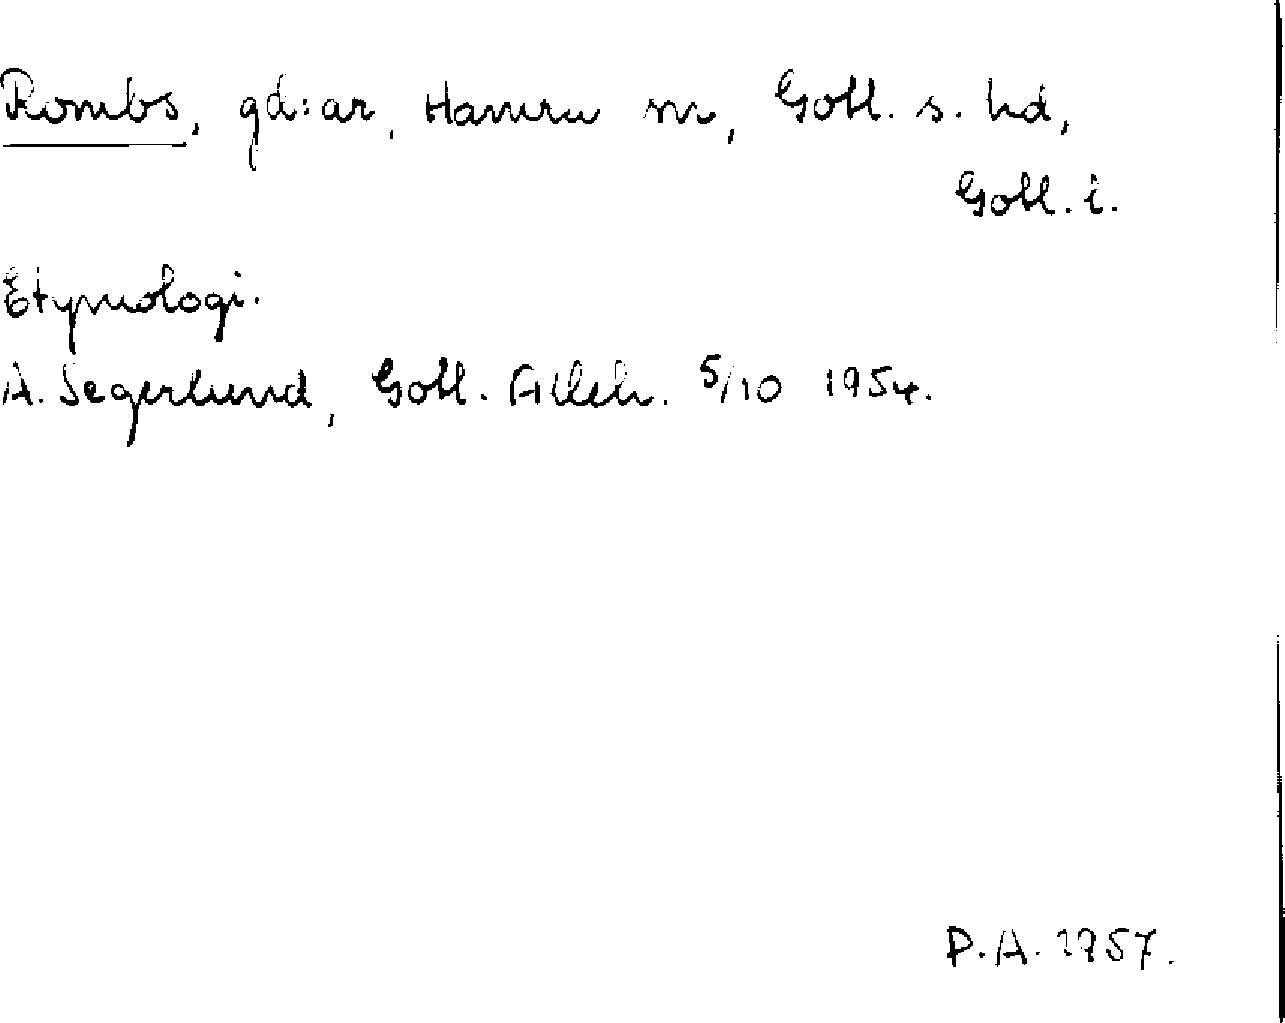 Rombs, gd:ar, Hamra sn, Gotl. s. hd,
Gotl. i.
Etymologi.
A. Segerlund, Gotl. Alleh. 5/10 1954.
P.A. 1957.